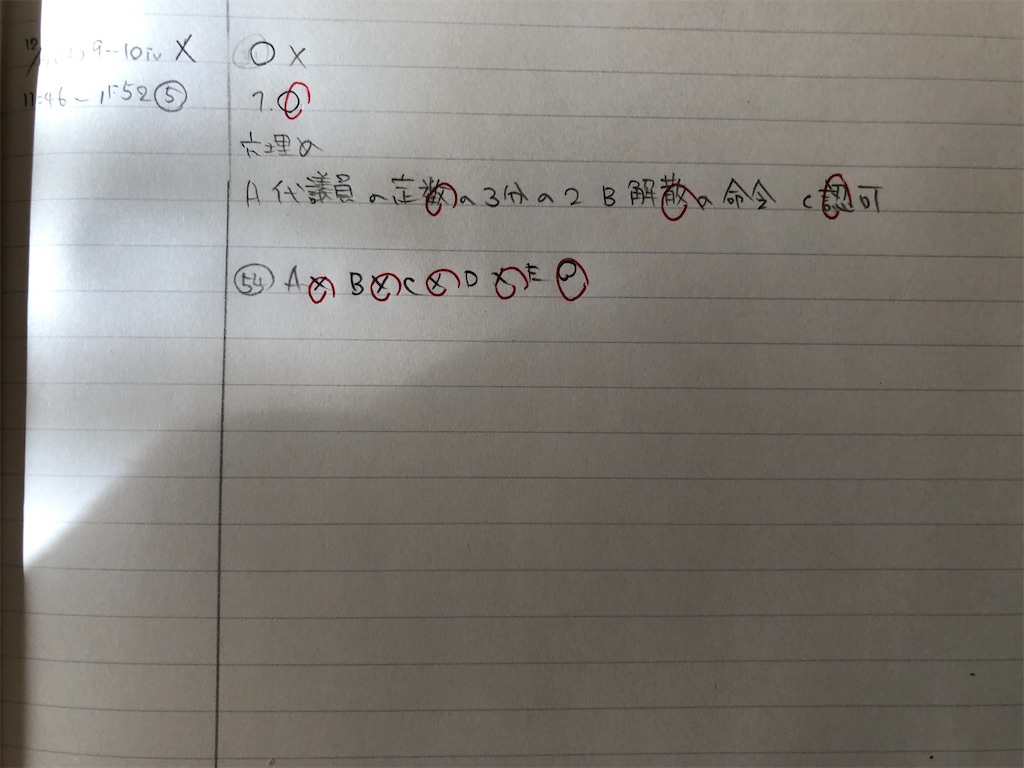 9-10iv X ○ X
11:46~11:52 ⑤ 7.○
穴埋め
A 代議員の定数の3分の2 B 解散の命令 C 認可
㊴ A× B× C× D × E ○